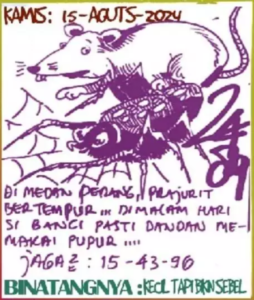 KAMIS: 15-AGUTS-2024
24
89
DI MEDAN PERANG, PRAJURIT
BERTEMPUR,,, DI MALAM HARI
SI BANCI PASTI DANDAN ME-
MAKAI PUPUR ,,,,
JAGA2 : 15-43-96
BINATANGNYA : KECIL TAPI BIKIN SEBEL